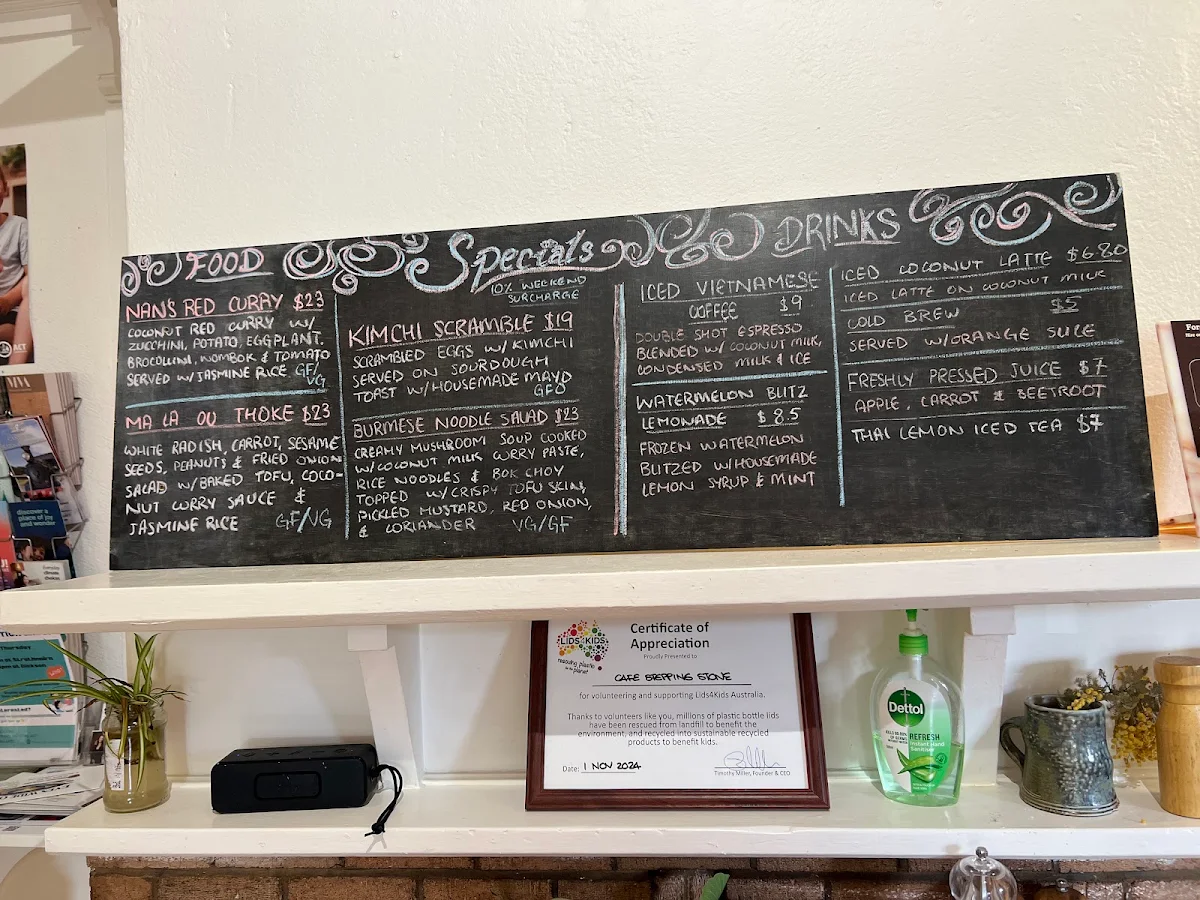 FOOD
Specials
10% WEEKEND
SURCHARGE
DRINKS
NAN'S RED CURRY $23
COCONUT RED CURRY W/
ZUCCHINI, POTATO, EGGPLANT,
BROCOLLINI, WOMBOK & TOMATO
SERVED W/JASMINE RICE GF/
VG
MA LA OU THOKE $23
WHITE RADISH, CARROT, SESAME
SEEDS, PEANUTS & FRIED ONION
SALAD W/BAKED TOFU, COCO-
NUT CURRY SAUCE &
JASMINE RICE GF/VG
KIMCHI SCRAMBLE $19
SCRAMBLED EGGS W/ KIMCHI
SERVED ON SOURDOUGH
TOAST W/HOUSEMADE MAYO
GFO
BURMESE NOODLE SALAD $23
CREAMY MUSHROOM SOUP COOKED
W/COCONUT MILK CURRY PASTE,
RICE NOODLES & BOK CHOY
TOPPED W/CRISPY TOFU SKIN,
PICKLED MUSTARD, RED ONION,
& CORIANDER VG/GF
ICED VIETNAMESE
COFFEE $9
DOUBLE SHOT ESPRESSO
BLENDED W/ COCONUT MILK,
CONDENSED MILK & ICE
WATERMELON BLITZ
LEMONADE $8.5
FROZEN WATERMELON
BLITZED W/HOUSEMADE
LEMON SYRUP & MINT
ICED COCONUT LATTE $6.80
ICED LATTE ON COCONUT MILK
COLD BREW $5
SERVED W/ORANGE SLICE
FRESHLY PRESSED JUICE $7
APPLE, CARROT & BEETROOT
THAI LEMON ICED TEA $7
ACT
discover a
place of joy
and wonder
Thursday
LIDS4KIDS
rescuing plastic
for the planet
Certificate of
Appreciation
Proudly Presented to
CAFE STEPPING STONE
for volunteering and supporting Lids4Kids Australia.
Thanks to volunteers like you, millions of plastic bottle lids
have been rescued from landfill to benefit the
environment, and recycled into sustainable recycled
products to benefit kids.
Date: 1 NOV 2024
Timothy Miller, Founder & CEO
Dettol
REFRESH
Instant Hand
Sanitiser